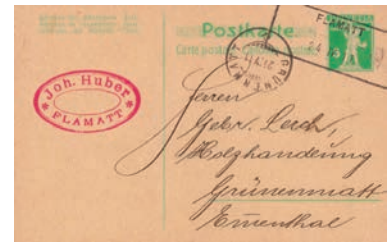 Postkarte
Carte postale
FLAMATT
GRÜNENMATT
Joh. Huber
FLAMATT
Herren
Gebr. Lerch,
Holzhandlung
Grünenmatt
Emmenthal